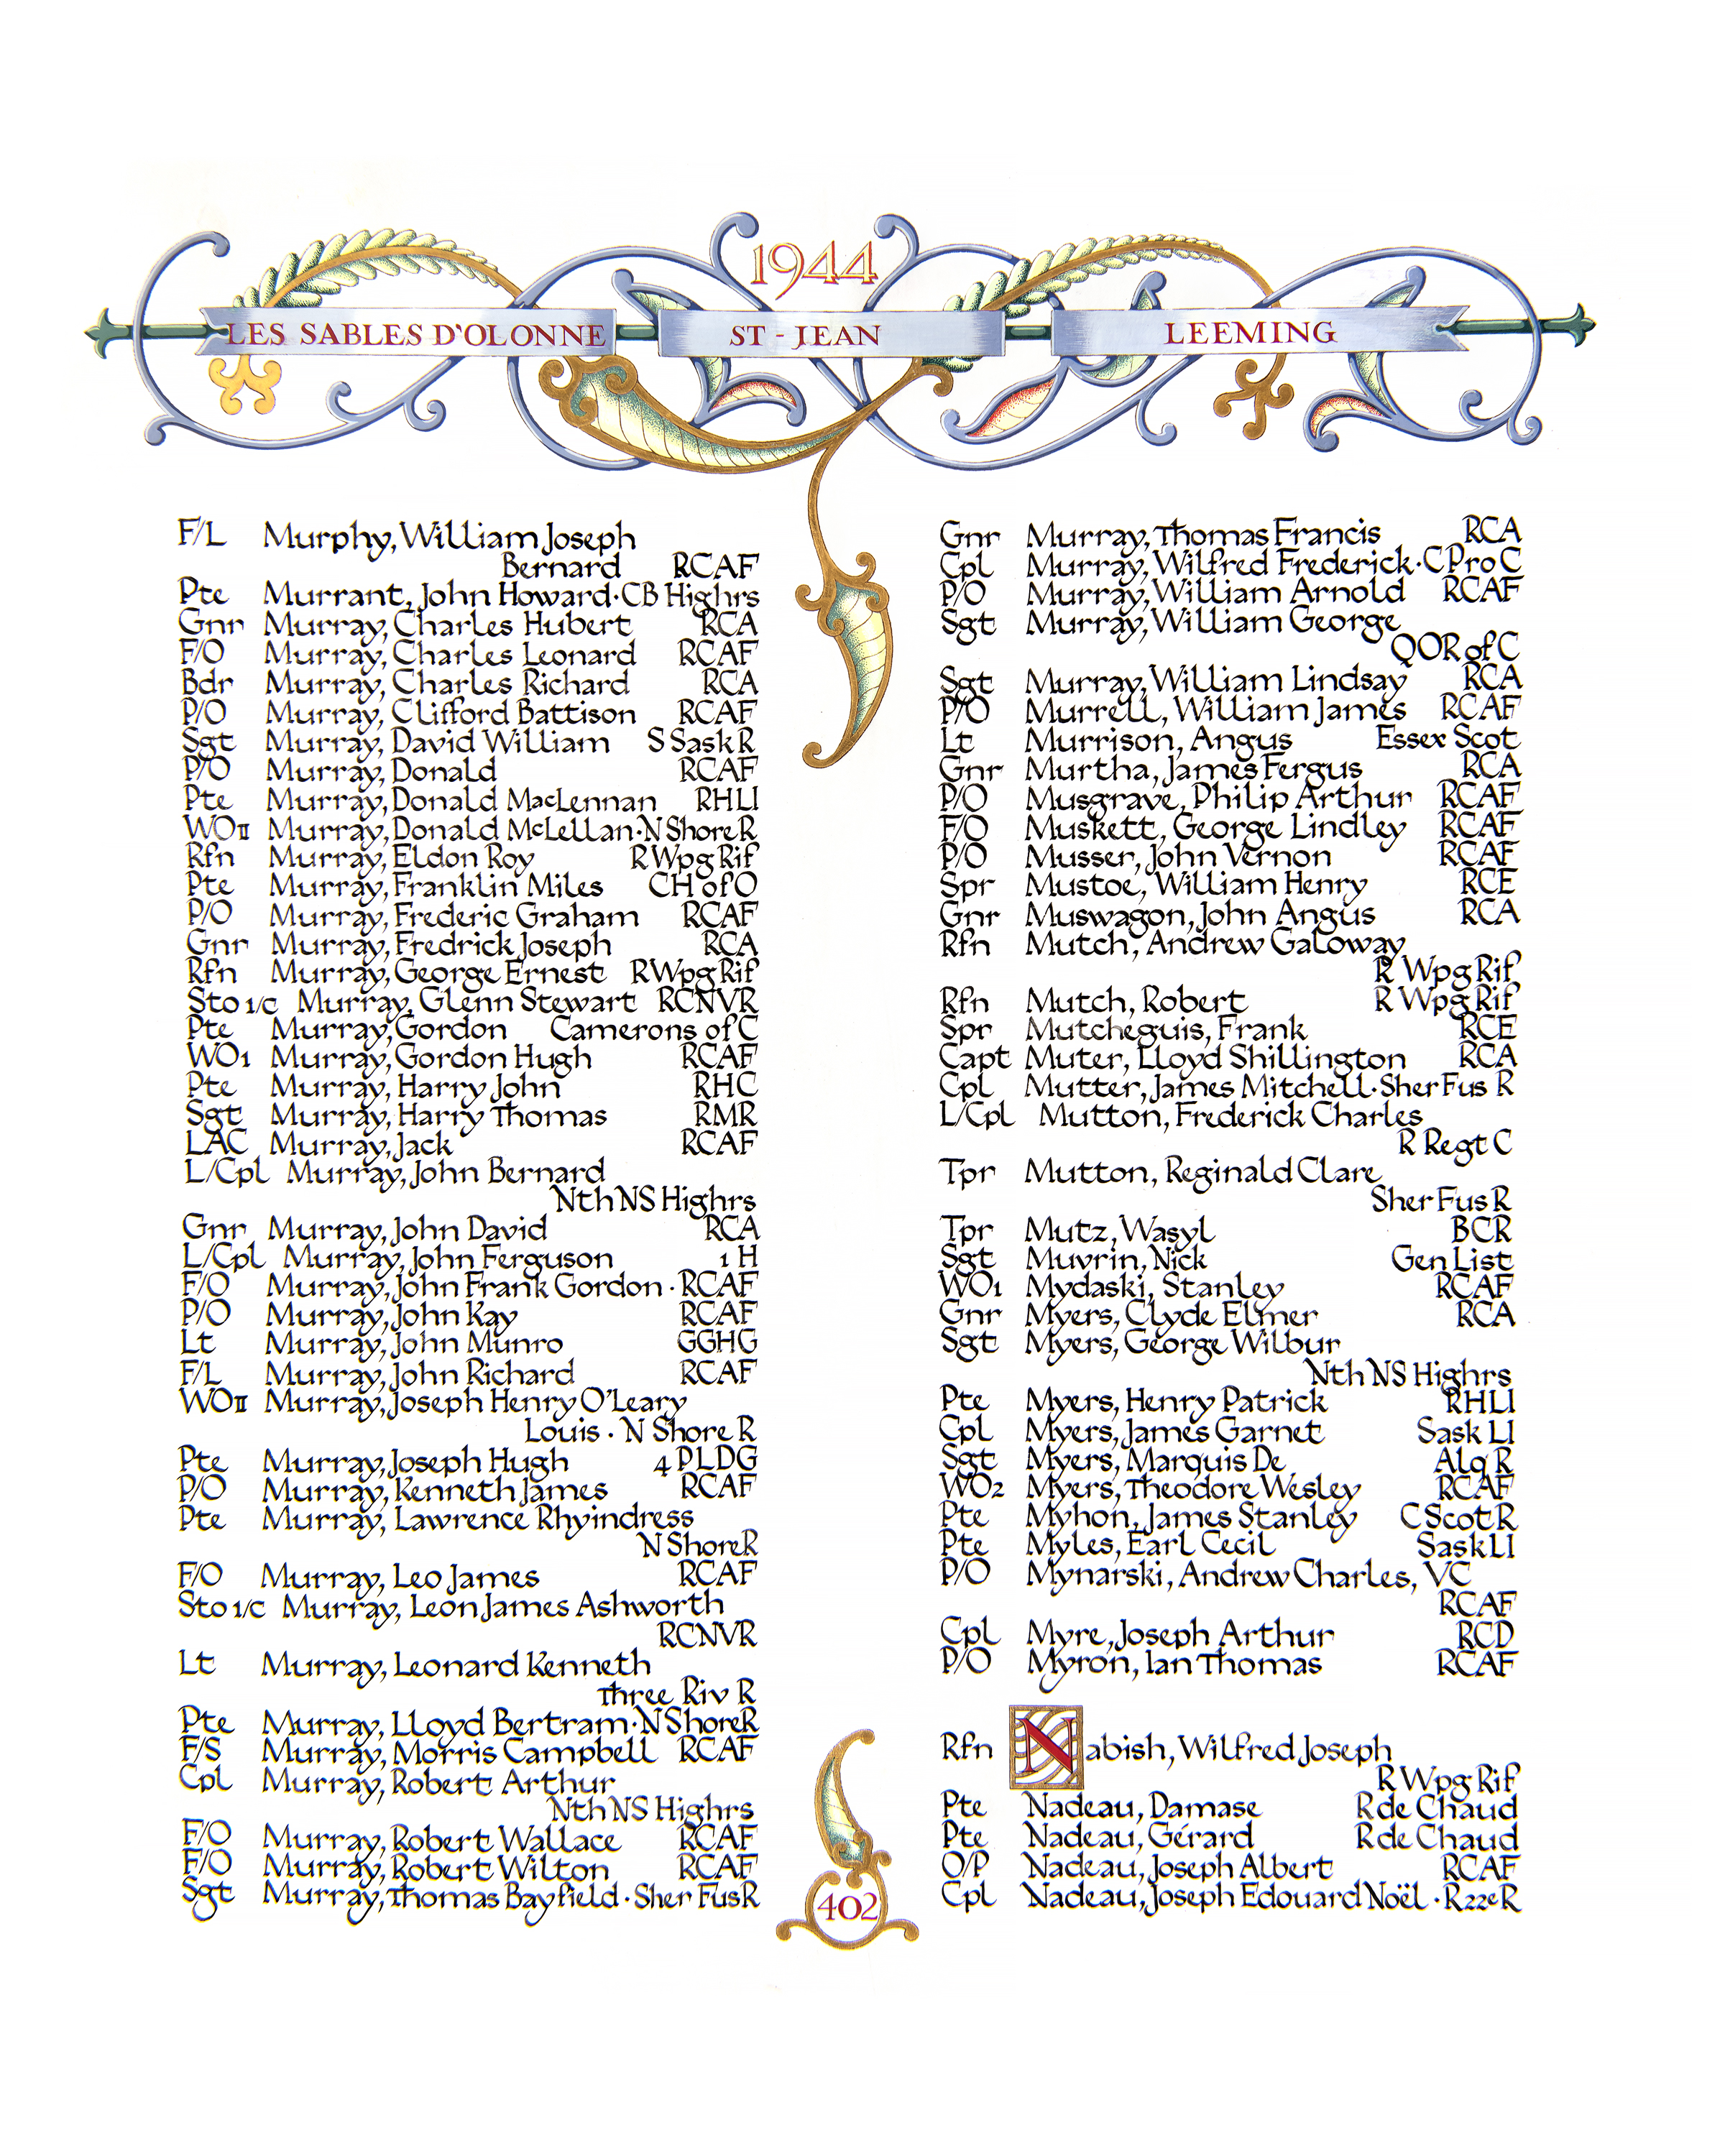 1944
LES SABLES D'OLONNE ST-JEAN LEEMING
F/L Murphy, William Joseph
Bernard RCAF
Pte Murrant, John Howard·CB Highrs
Gnr Murray, Charles Hubert RCA
F/O Murray, Charles Leonard RCAF
Bdr Murray, Charles Richard RCA
P/O Murray, Clifford Battison RCAF
Sgt Murray, David William S Sask R
P/O Murray, Donald RCAF
Pte Murray, Donald MacLennan RHLI
WOII Murray, Donald McLellan·N Shore R
Rfn Murray, Eldon Roy R Wpg Rif
Pte Murray, Franklin Miles CH of O
P/O Murray, Frederic Graham RCAF
Gnr Murray, Fredrick Joseph RCA
Rfn Murray, George Ernest R Wpg Rif
Sto 1/c Murray, Glenn Stewart RCNVR
Pte Murray, Gordon Camerons of C
WO1 Murray, Gordon Hugh RCAF
Pte Murray, Harry John RHC
Sgt Murray, Harry Thomas RMR
LAC Murray, Jack RCAF
L/Cpl Murray, John Bernard
Nth NS Highrs
Gnr Murray, John David RCA
L/Cpl Murray, John Ferguson 1 H
F/O Murray, John Frank Gordon · RCAF
P/O Murray, John Kay RCAF
Lt Murray, John Munro GGHG
F/L Murray, John Richard RCAF
WOII Murray, Joseph Henry O'Leary
Louis · N Shore R
Pte Murray, Joseph Hugh 4 PLDG
P/O Murray, Kenneth James RCAF
Pte Murray, Lawrence Rhyindress
N Shore R
F/O Murray, Leo James RCAF
Sto 1/c Murray, Leon James Ashworth
RCNVR
Lt Murray, Leonard Kenneth
Three Riv R
Pte Murray, Lloyd Bertram·N Shore R
F/S Murray, Morris Campbell RCAF
Cpl Murray, Robert Arthur
Nth NS Highrs
F/O Murray, Robert Wallace RCAF
F/O Murray, Robert Wilton RCAF
Sgt Murray, Thomas Bayfield · Sher Fus R
Gnr Murray, Thomas Francis RCA
Cpl Murray, Wilfred Frederick·C Pro C
P/O Murray, William Arnold RCAF
Sgt Murray, William George
QOR of C
Sgt Murray, William Lindsay RCA
P/O Murrell, William James RCAF
Lt Murrison, Angus Essex Scot
Gnr Murtha, James Fergus RCA
P/O Musgrave, Philip Arthur RCAF
F/O Muskett, George Lindley RCAF
P/O Musser, John Vernon RCAF
Spr Mustoe, William Henry RCE
Gnr Muswagon, John Angus RCA
Rfn Mutch, Andrew Galoway
R Wpg Rif
Rfn Mutch, Robert R Wpg Rif
Spr Mutcheguis, Frank RCE
Capt Muter, Lloyd Shillington RCA
Cpl Mutter, James Mitchell·Sher Fus R
L/Cpl Mutton, Frederick Charles
R Regt C
Tpr Mutton, Reginald Clare
Sher Fus R
Tpr Mutz, Wasyl BCR
Sgt Muvrin, Nick Gen List
WO1 Mydaski, Stanley RCAF
Gnr Myers, Clyde Elmer RCA
Sgt Myers, George Wilbur
Nth NS Highrs
Pte Myers, Henry Patrick RHLI
Cpl Myers, James Garnet Sask LI
Sgt Myers, Marquis De Alq R
WO2 Myers, Theodore Wesley RCAF
Pte Myhon, James Stanley C Scot R
Pte Myles, Earl Cecil Sask LI
P/O Mynarski, Andrew Charles, VC
RCAF
Cpl Myre, Joseph Arthur RCD
P/O Myron, Ian Thomas RCAF
Rfn Nabish, Wilfred Joseph
R Wpg Rif
Pte Nadeau, Damase R de Chaud
Pte Nadeau, Gérard R de Chaud
O/P Nadeau, Joseph Albert RCAF
Cpl Nadeau, Joseph Edouard Noël · R22eR
402